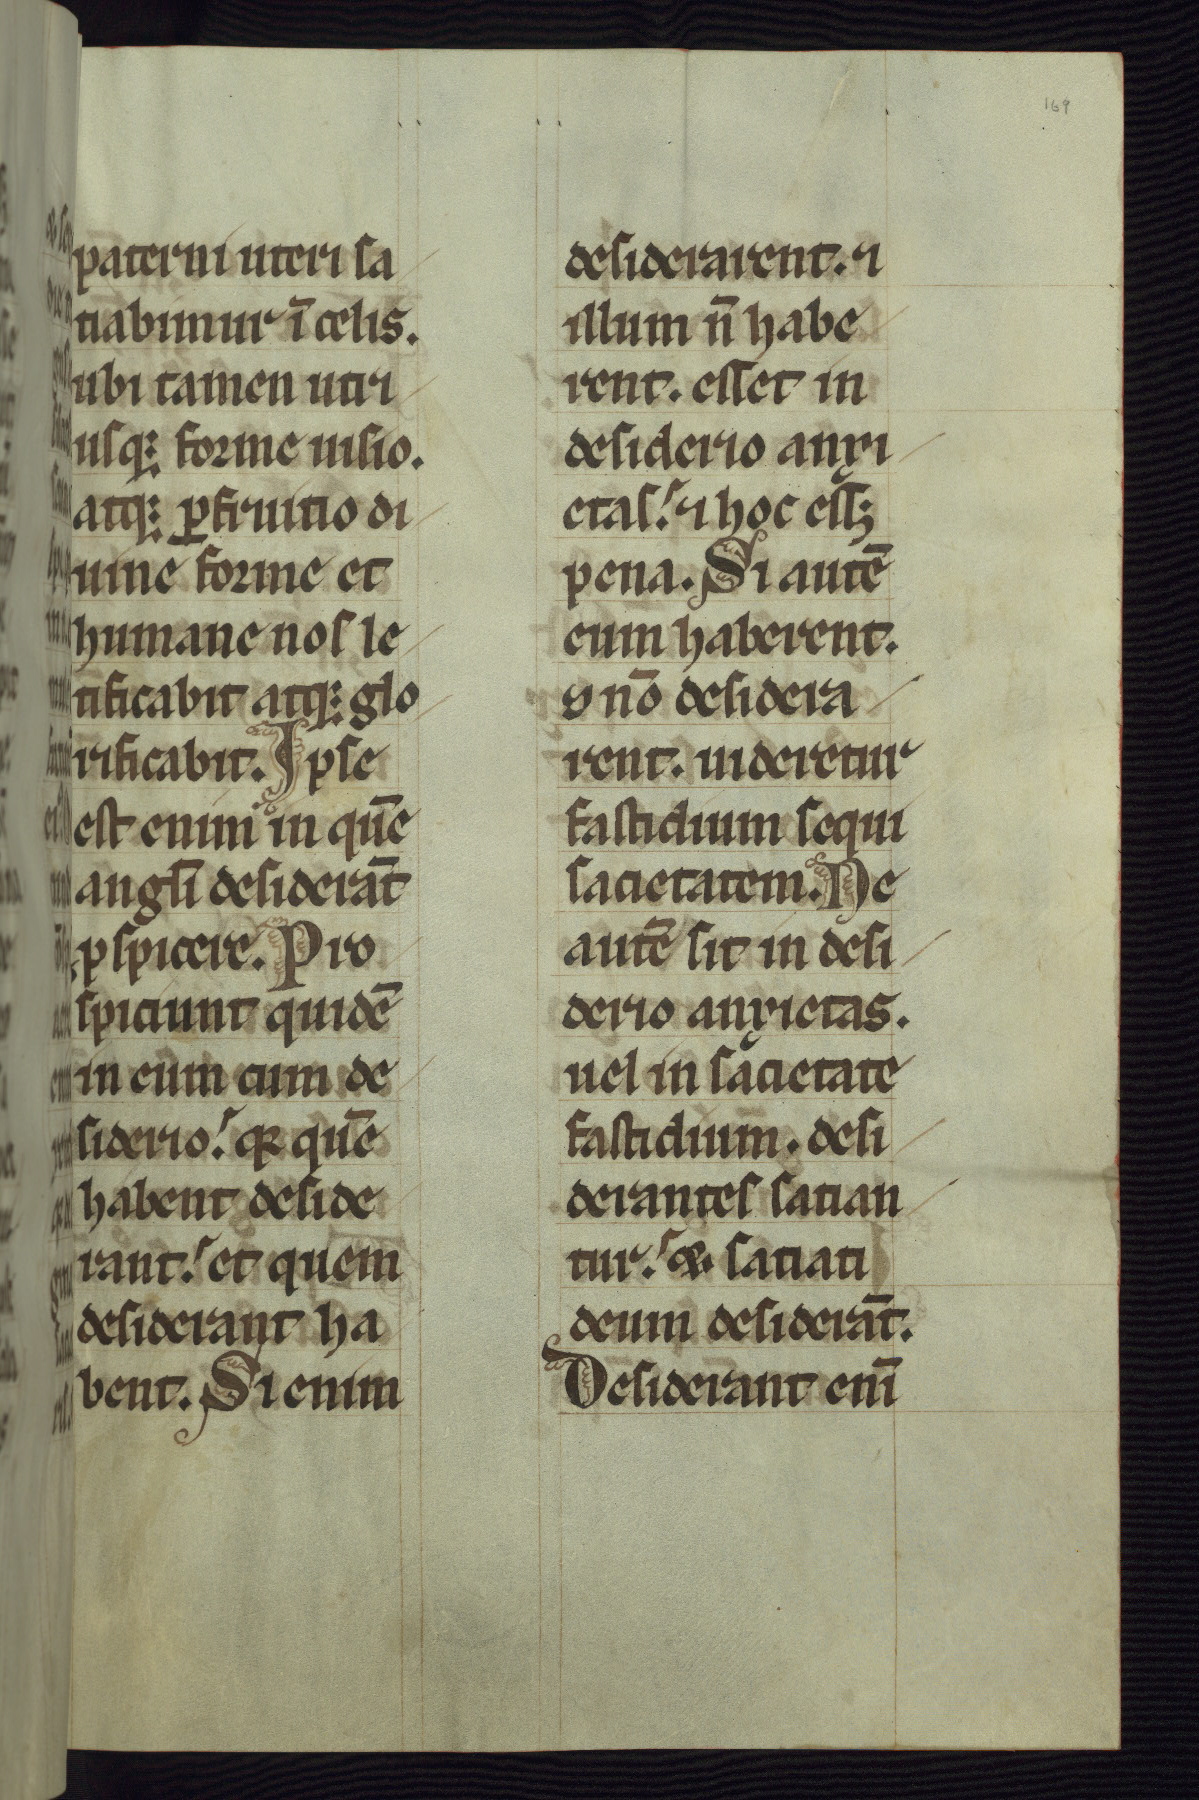 169
paterni uteri sa
tiabimur ī celis.
ubi tamen utri
usq; forme uisio.
atq; ꝑfruitio di
uine forme et
humane nos le
tificabit atq; glo
rificabit. Ipse
est enim in quē
angłi desiderāt
ꝓspicere. Pro
spiciunt quidē
in eum cum de
siderio. qꝛ quē
habent deside
rant. et quem
desiderant ha
bent. Si enim
desiderarent. ⁊
illum n̄ habe
rent. esset in
desiderio anxi
etas. ⁊ hoc ess;
pena. Si autē
eum haberent.
⁊ nō desidera
rent. uideretur
fastidium sequi
sacietatem. Ne
autē sit in desi
derio anxietas.
uel in sacietate
fastidium. desi
derantes satian
tur. & satiati
deum desiderāt.
Desiderant enī